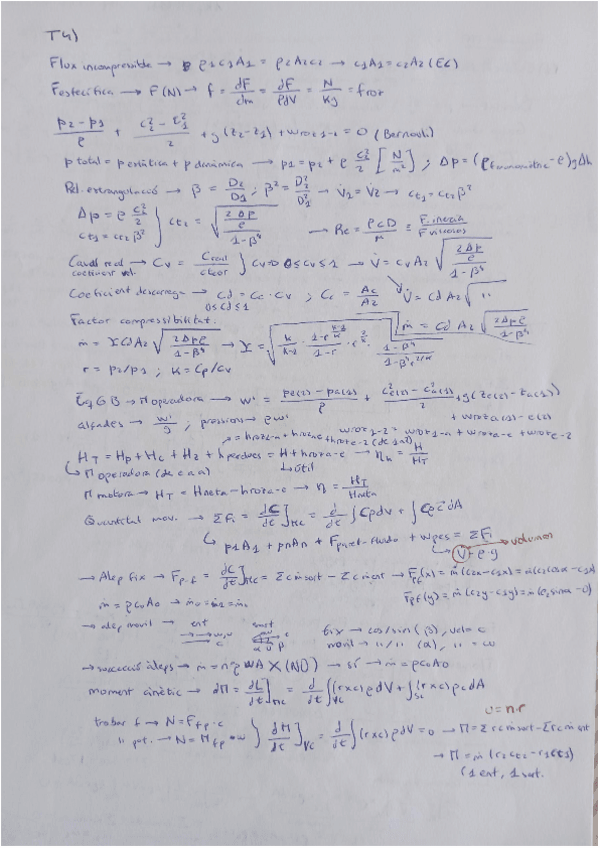 T4)
Flux incompressible → ρ1c1A1 = ρ2A2c2 → c1A1 = c2A2 (EC)
F específica → F(N) → f = dF/dm = dF/ρdV = N/kg = fror
(p2 - p1)/ρ + (c2² - c1²)/2 + g(z2 - z1) + wroz1-2 = 0 (Bernoulli)
p total = p estàtica + p dinàmica → p1 = p2 + ρ c2²/2 [N/m²] ; Δp = (ρ - ρ)gΔh
Rel. estrangulació → β = D2/D1 ; β² = D2²/D1² → V̇1 = V̇2 → ct1 = ct2β²
Δp = ρ c2²/2
ct1 = ct2β² } ct2 = √((2Δp/ρ)/(1-β⁴)) → Re = ρcD/μ = F. inercia/F viscoses
Cabal real → Cv = Creal/cteor } 0≤Cv≤1 → V̇ = cvA2 √((2Δp/ρ)/(1-β⁴))
coeficient vel.
Coeficient descarrega → Cd = Cc·Cv ; Cc = Ac/A2 V̇ = CdA2 √ ''
0≤Cd≤1
Factor compressibilitat.
ṁ = YCdA2 √(2Δpρ/(1-β⁴)) → Y = √(k/(k-1) · (1-r^((k-1)/k))/(1-r) · r^(2/k) · (1-β⁴)/(1-β⁴r^(2/k))) ṁ = Cd A2 √(2Δpρ/(1-β⁴))
r = p2/p1 ; K = Cp/Cv
Eq G B → M operadora → w' = (pe(2) - pa(1))/ρ + (c²e(2) - c²a(1))/2 + g(ze(2) - za(1))
+ wroza(1)-e(2)
alçades → w'/g ; pressions → ρw'
wroz1-2 = wroz1-a + wroza-e + wroze-2
HT = Hp + Hc + Hz + hperdues = H + hroza-e → ηh = H/HT
↳ M operadora (de e a a) ↳ útil
M motora → HT = Hneta - hroza-e → η = HT/Hneta
Quantitat mov. → ΣFi = dC/dt]MC = d/dt ∫ cρdV + ∫ cρc dA
↳ p1A1 + pnAn + Fparet-fluido + wpes = ΣFi
↳ V·ρ·g → volumen
→ Àlep fix → Fp-f = dC/dt]MC = Σcṁsort - Σcṁent → Fpf(x) = ṁ(c2x - c1x) = ṁ(c2cosα - c1x)
ṁ = ρc0A0 → ṁ0 = ṁ1 = ṁ2 Fpf(y) = ṁ(c2y - c1y) = ṁ(c2sinα - 0)
→ alep movil → ent sort fix → cos/sin (β), velo c
movil → ''/'' (α), '' = w
→ successió àleps → ṁ = ρ WA X (NO) → sí → ṁ = ρc0A0
moment cinètic → dM = dL/dt]MC = d/dt ∫VC (r×c)ρdV + ∫SC (r×c)ρcdA
u = n·r
trobar f → N = Ffp·c
'' pot. → N = Mfp·w } dM/dt]VC = d/dt ∫(r×c)ρdV = 0 → M = Σrcṁsort - Σrcṁent
→ M = ṁ(r2ct2 - r1ct1)
(1 ent, 1 sort.